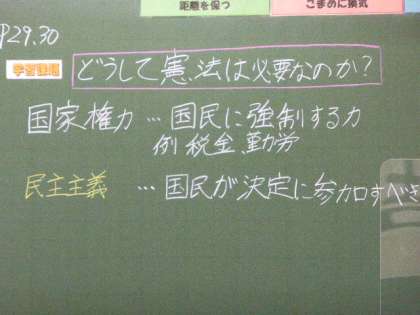 距離を保つ
こまめに換気
P29.30
学習課題
どうして憲法は必要なのか?
国家権力…国民に強制する力
例 税金、勤労
民主主義 …国民が決定に参加すべき